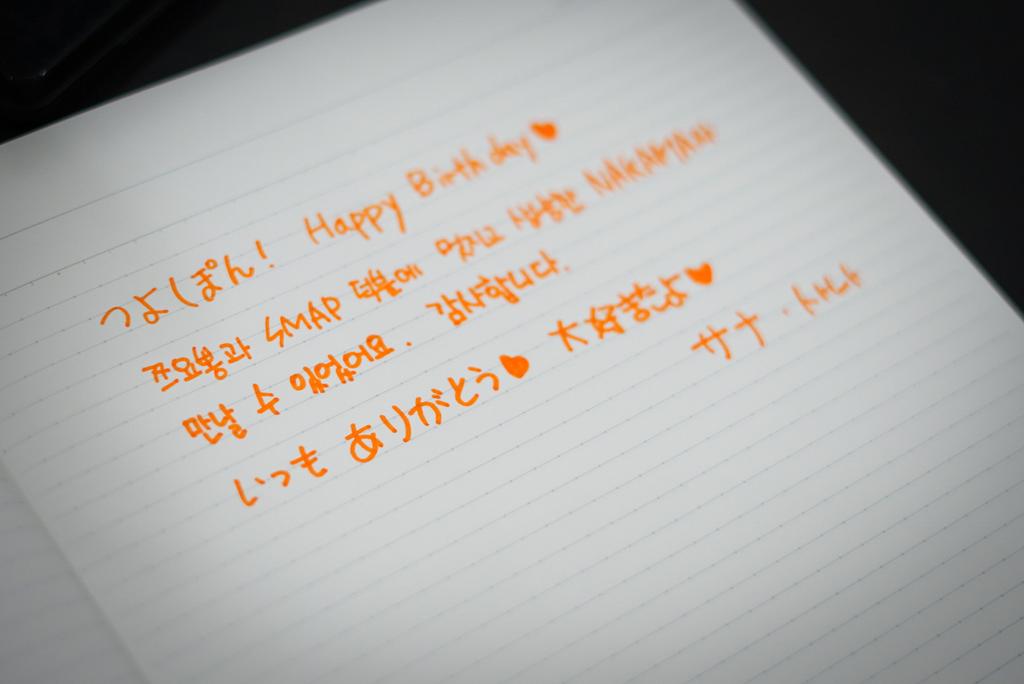 つよしぽん! Happy Birthday♥
쯔요봉과 SMAP 덕분에 멋지고 상냥한 NAKAMA
만날 수 있었어요. 감사합니다.
いつも ありがとう♥ 大好きだよ♥
サナ・사나